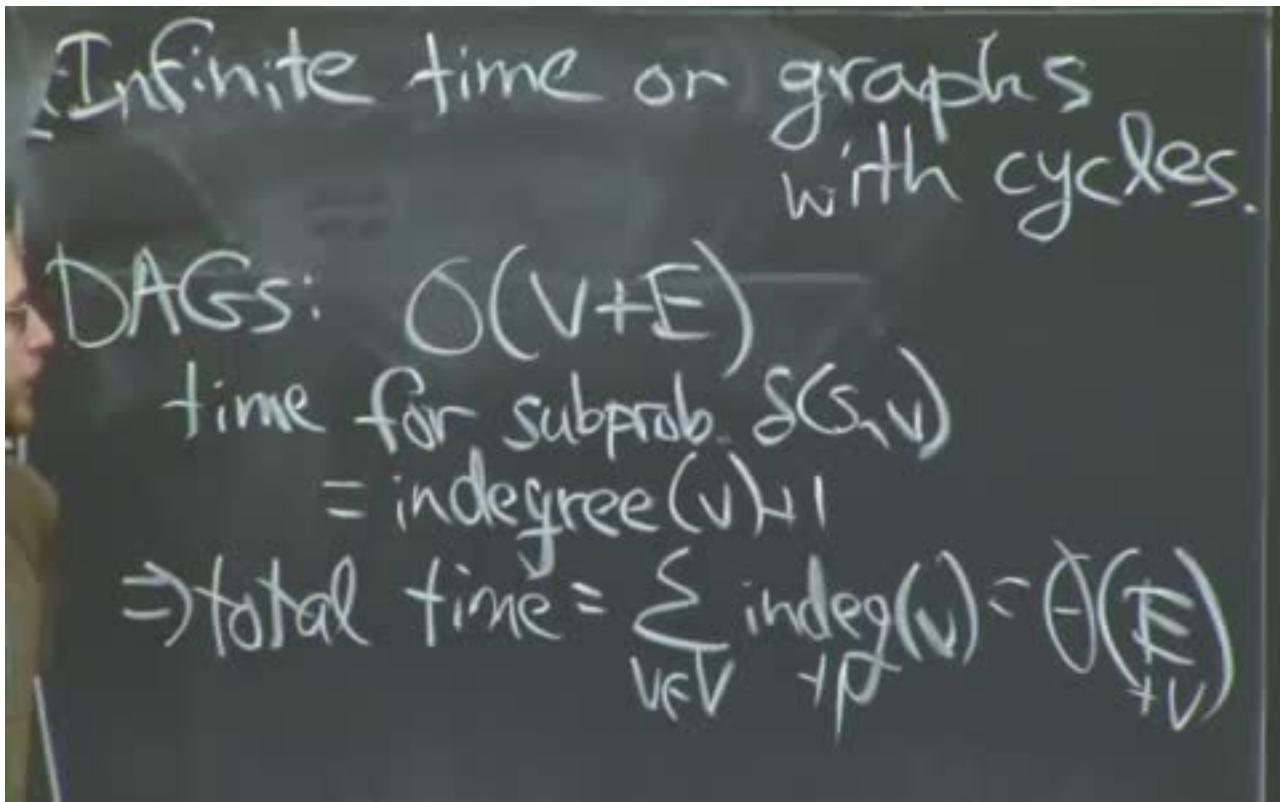 Infinite time on graphs
with cycles.
DAGs: O(V+E)
time for subprob. δ(s,v)
= indegree(v)+1
⇒ total time = Σ indeg(v) = Θ(E
v∈V +1 +V)